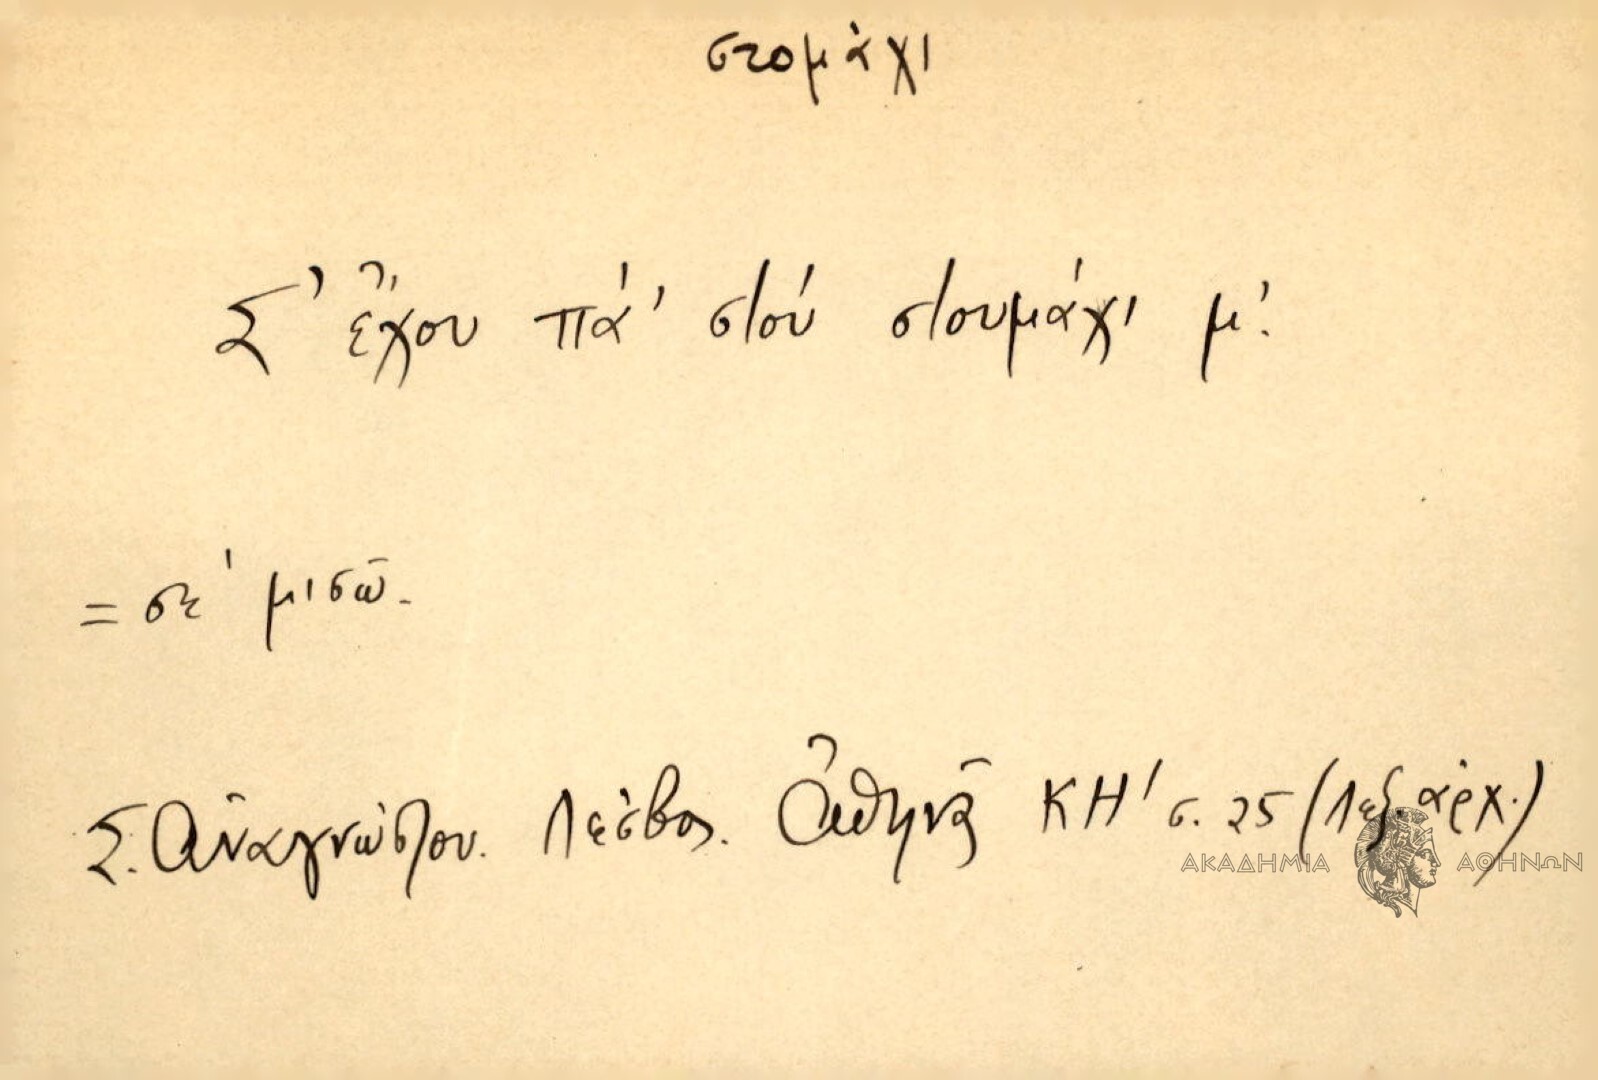 στομάχι
Σ' ἔχου πά' στού στουμάχι μ'.
= σὲ μισῶ.
Σ. Ἀναγνώστου. Λέσβος. Ἀθηνᾶ ΚΗ' σ. 25 (Λεξ. ἀρχ.)
ΑΚΑΔΗΜΙΑ ΑΘΗΝΩΝ